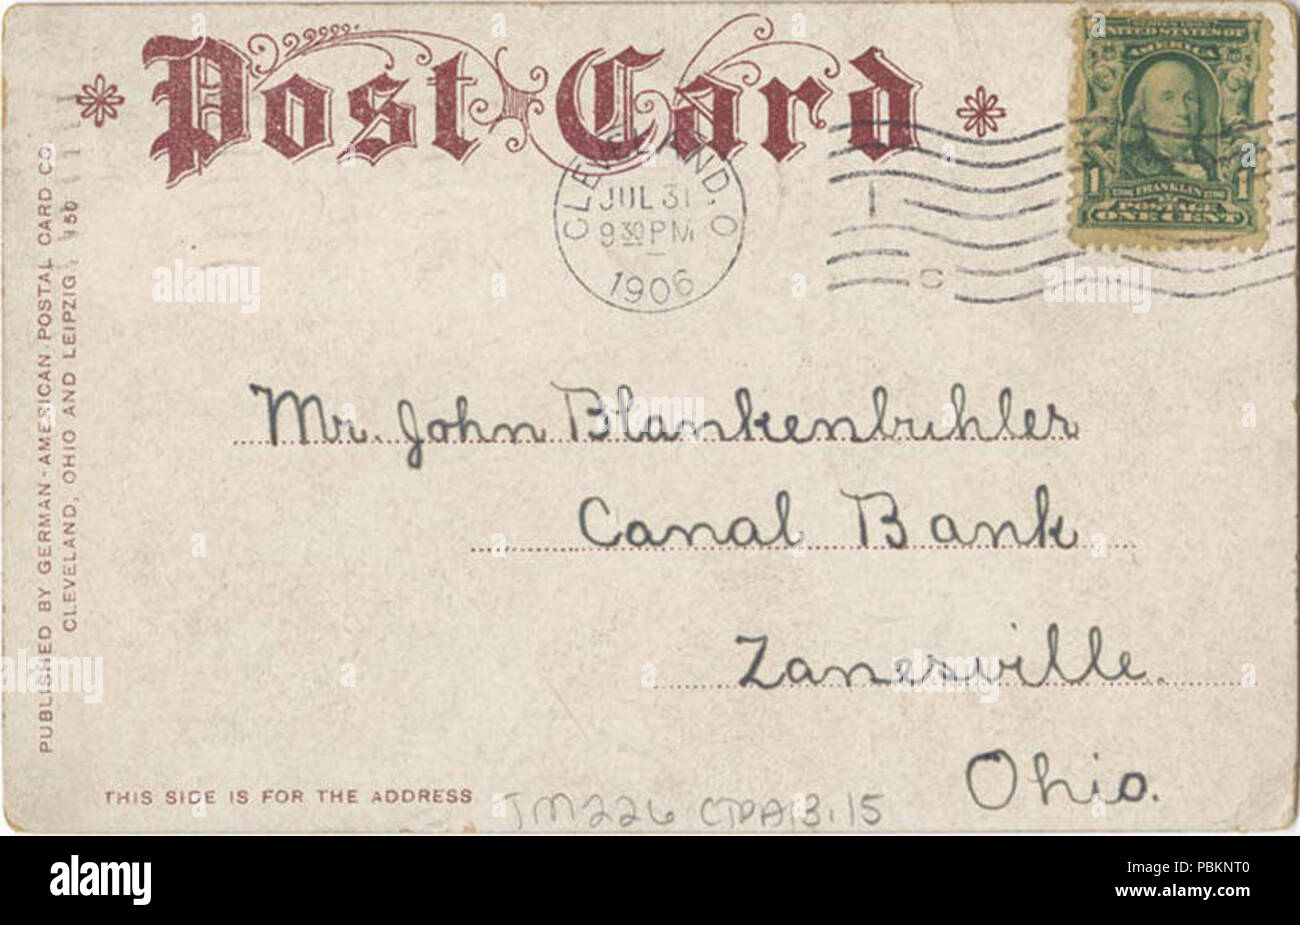 Post Card
CLEVELAND, O
JUL 31
9 30 PM
1906
UNITED STATES OF
AMERICA
1 FRANKLIN 1
POSTAGE
ONE CENT
PUBLISHED BY GERMAN-AMERICAN POSTAL CARD CO.
CLEVELAND, OHIO AND LEIPZIG. 150
Mr. John Blankenbuhler
Canal Bank
Zanesville.
Ohio.
THIS SIDE IS FOR THE ADDRESS
alamy
Image ID: PBKNT0
www.alamy.com